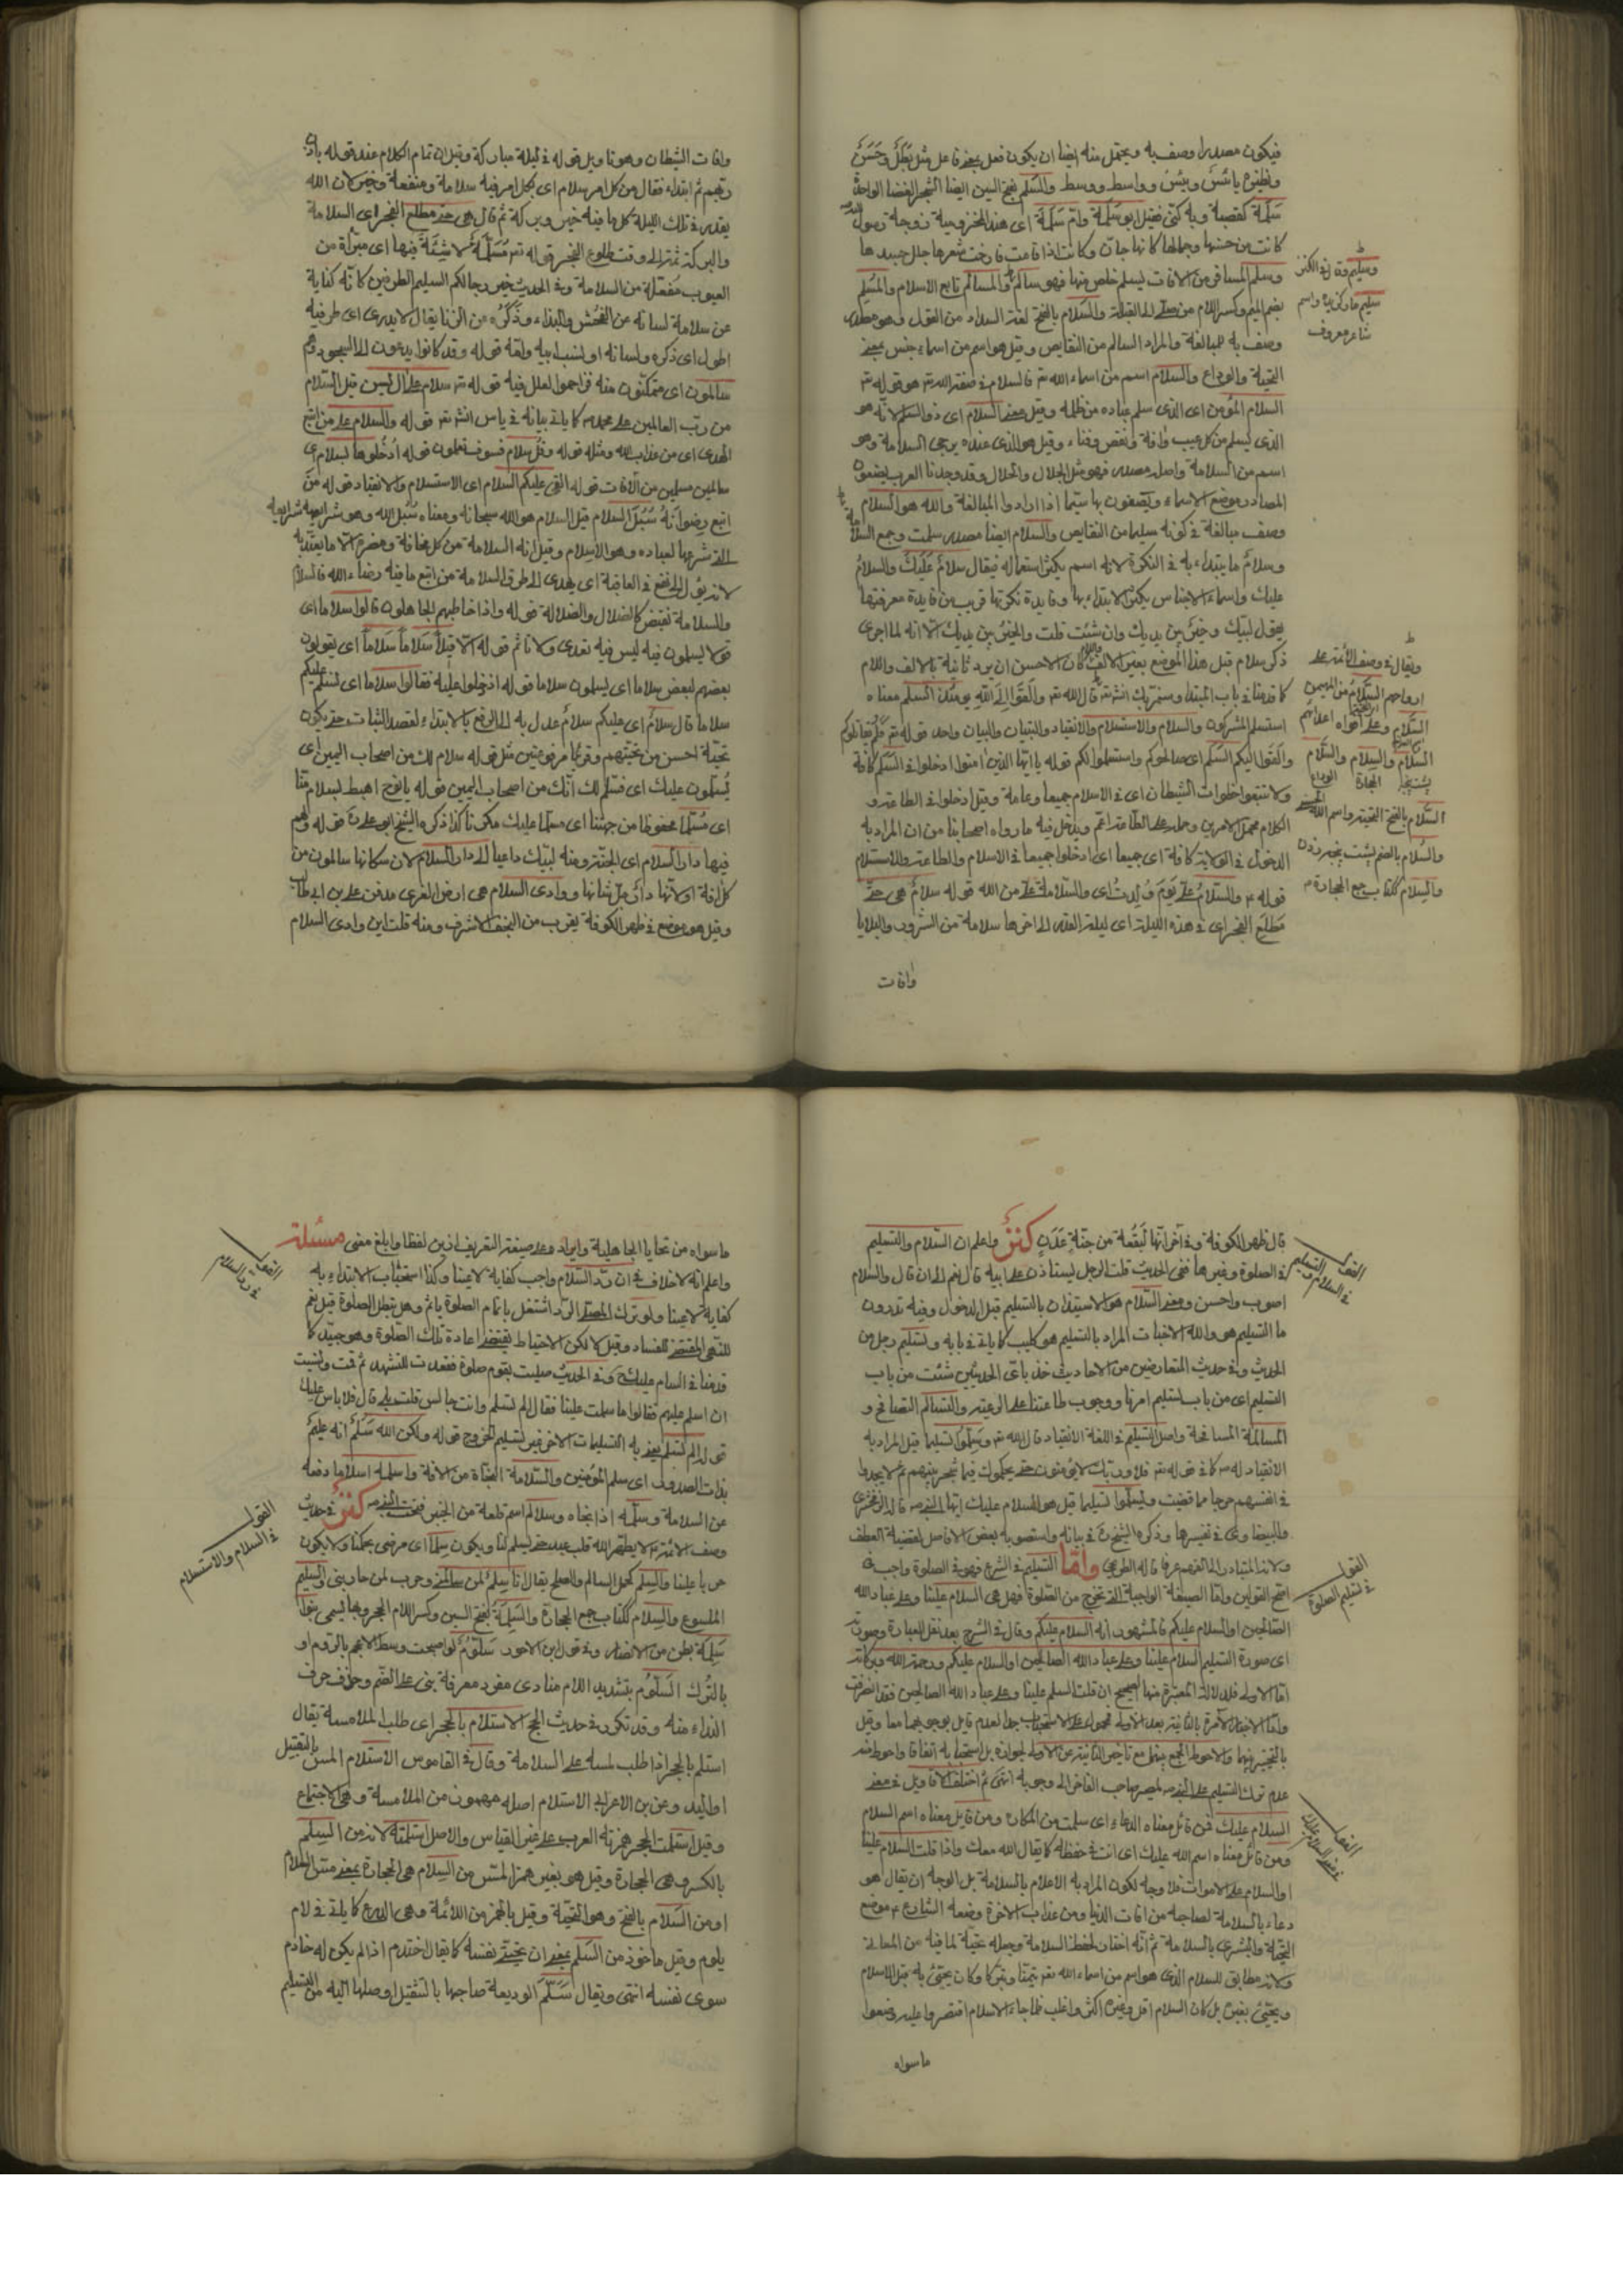 فيكون مصدرا وصف به ويحتمل منه ايضا ان يكون فعل بمعنى فاعل مثل بطل وحسن
ونظيره يابس ويبس وواسط ووسط والسلم بفتح السين ايضا الشجر الغضا الواحدة
سلمة كقصبة وبه كنى فقيل ابو سلمة وام سلمة اى هند المخزومية زوجة رسول الله
كانت من حسنها وجمالها كانها جان وكانت اذا قامت فارخت شعرها جلل جسدها
وسلم المسافر من الافات يسلم خلص منها فهو سالم والمسالم تابع الاسلام والمسلم
بضم الميم وكسر اللام من صلى الى القبلة والسلام بالفتح لغة السداد من القول وهو مصدر
وصف به للمبالغة والمراد السالم من النقايص وقيل هو اسم من اسماء جنس بمعنى
التحية والوداع والسلام اسم من اسماء الله تع فالسلام فى صفة الله تع هو قوله تع
السلام المؤمن اى الذى سلم عباده من ظلمه وقيل معنى السلام اى ذو السلام لانه هو
الذى يسلم من كل عيب وافة ونقص وفناء وقيل هو الذى عنده يرجى السلامة وهو
اسم من السلامة واصله مصدر فهو مثل الجلال والحلال وقد وجدنا العرب يضعون
المصادر موضع الاسماء ويصفون بها سيما اذا ارادوا المبالغة والله هو السلام
وصف مبالغة فى كونه سليما من النقايص والسلام ايضا مصدر سلمت وجمع السلامة
وسلام ما يبتداء به فى النكرة لانه اسم يكثر استعماله فيقال سلام عليك والسلام
عليك واسماء الاجناس يكثر الابتداء بها وفايدة نكرتها قريب من فايدة معرفتها
يقول لبيك وخير بين يديك وان شئت قلت والخير بين يديك الا انه لما اجرى
ذكر سلام قبل هذا الموضع بغير الالف واللام كان الاحسن ان يرد ثانية بالالف واللام
كما قدمنا فى باب المبتداء وستمر بك انش تع قال الله تع والقوا الى الله يومئذ السلم معناه
استسلم المشركون والسلام والاستسلام والانقياد والتبيان والبيان واحد قوله تع فلم يقاتلوكم
والقوا اليكم السلم اى صالحوكم واستسلموا لكم قوله يا ايها الذين امنوا ادخلوا فى السلم كافة
ولا تتبعوا خطوات الشيطان اى فى الاسلام جميعا وعامة وقيل ادخلوا فى الطاعة و
الكلام محمل الامرين وحمله على الطاعة اعم ويدخل فيه ما رواه اصحابنا من ان المراد به
الدخول فى الولاية كافة اى جميعا اى ادخلوا جميعا فى الاسلام والطاعة والاستسلام
قوله ع والسلام على يوم ولدت اى والسلامة على من الله قوله سلام هى حتى
مطلع الفجر اى فى هذه الليلة اى ليلة القدر الى اخرها سلامة من الشرور والبلايا
وافات
وسليم
شاعر معروف
ويقال فى وصف الائمة على
ارواحهم السلام من المهيمن
السلام وعلى افواه اعدائهم
السلام والسلام والسلام
السلام بالفتح التحية واسم الله
والسلام ككتاب جمع الحجارة م
وافات الشيطان وهو تاويل قوله فى ليلة مباركة وقيل ان تمام الكلام عند قوله باذن
ربهم ثم ابتداء فقال من كل امر سلام اى بكل امر فيه سلامة ومنفعة وخير لان الله
يقدر فى تلك الليلة كل ما فيه خير وبركة ثم قال هى حتى مطلع الفجر اى السلامة
والبركة تمتد الى وقت طلوع الفجر قوله تع مسلمة لا شية فيها اى مبراة من
العيوب مفعلة من السلامة وفى الحديث خير رجالكم السليم الطرفين كانه كناية
عن سلامة لسانه عن الفحش والبذاء وذكره عن الزنا يقال لا يدرى اى طرفيه
اطول اى ذكره ولسانه او لنسب ابيه وامه قوله وقد كانوا يدعون الى السجود وهم
سالمون اى متمكنون منه قوله تع سلام على ال يسين قيل السلام
من رب العالمين على محمد كما ياتى بيانه فى ياس انش تع قوله والسلام على من اتبع
الهدى اى من عذاب الله ومثله قوله وقل سلام فسوف يعلمون قوله ادخلوها بسلام اى
سالمين مسلمين من الافات قوله القى عليكم السلام اى الاستسلام والانقياد قوله من
اتبع رضوانه سبل السلام قيل السلام هو الله سبحانه ومعناه سبل الله وهو شرايعه
التى شرعها لعباده وهو الاسلام وقيل انه السلامة من كل مخافة ومضرة الا ما يعتد به
لانه يؤل الى نفع فى العاقبة اى يهدى الى طرق السلامة من اتبع ما فيه رضاء الله فالسلام
والسلامة كالضلال والضلالة قوله واذا خاطبهم الجاهلون قالوا سلاما اى
قولا يسلمون فيه ليس فيه تعدى ولا تاثم قوله الا قيلا سلاما سلاما اى يقولون
بعضهم لبعض سلاما اى يسلمون سلاما قوله اذ دخلوا عليه فقالوا سلاما اى نسلم عليكم
سلاما قال سلام اى عليكم سلام عدل به الى الرفع بالابتداء لقصد الثبات حتى يكون
تحيته احسن من تحيتهم وقرئا مرفوعين مثل قوله سلام لك من اصحاب اليمين اى
يسلمون عليك اى فسلم لك انك من اصحاب اليمين قوله يا نوح اهبط بسلام منا
اى مسلما محفوظا من جهتنا اى مسلما عليك مكرما كذا ذكره الشيخ ابو على ره قوله ولهم
فيها دار السلام اى الجنة ومنه لبيك داعيا الى دار السلام لان سكانها سالمون من
كل افة او لانها داره جل شانها ووادى السلام هى ارض الغرى مدفن على بن ابى طالب
وقيل هو موضع فى ظهر الكوفة يقرب من النجف الاشرف ومنه قلت اين وادى السلام
قال ظهر الكوفة وفى اخر انها لبقعة من جنة عدن كنز واعلم ان السلام والتسليم
فى الصلوة وغيرها ففى الحديث قلت الرجل يستاذن على ابيه قال نعم الى ان قال والسلام
اصوب واحسن ومعنى السلام هو الاستيذان بالتسليم قبل الدخول وفيه تدرون
ما التسليم هو والله الاخبات المراد بالتسليم كما ياتى فى بابه وتسليم رجل من
الحديث وفى حديث المتعارضين من الاحاديث خذ باى الحديثين شئت من باب
التسليم اى من باب تسليم امرنا ووجوب طاعتنا على الرعية والتسالم التصالح و
المسالمة المصالحة واصل التسليم فى اللغة الانقياد قال الله تع وسلموا تسليما قيل المراد به
الانقياد له كما فى قوله تع فلا وربك لا يؤمنون حتى يحكموك فيما شجر بينهم ثم لا يجدوا
فى انفسهم حرجا مما قضيت ويسلموا تسليما قيل هو السلام عليك ايها النبى قاله الزمخشرى
والبيضاوى فى تفسيرها وذكره الشيخ فى بيانه واستصوبه بعض الافاضل لقضية العطف
ولانه المتبادر الى الفهم عرفا قاله الطريحى واما التسليم فى الشرع فهو فى الصلوة واجب فى
اصح القولين واما الصيغة الواجبة التى تخرج من الصلوة فهل هى السلام علينا وعلى عباد الله
الصالحين او السلام عليكم فالمشهور انه السلام عليكم وقال فى الشرح بعد نقل العبادة وصورته
اى صورة التسليم السلام علينا وعلى عباد الله الصالحين او السلام عليكم ورحمة الله وبركاته
اما الاولى فلدلالة المعتبرة منها الصحيح ان قلت السلم علينا وعلى عباد الله الصالحين فقد انصرفت
واما الاخبار الامرة بالثانية بعد الاولى محمول على الاستحباب جمعا لعدم قايل بوجوبهما معا وقيل
بالتخيير بينهما والاحوط الجمع بينهما مع تاخير الثانية عن الاولى لجوازه بل استحبابه اتفاقا واحوط منه
عدم ترك التسليم على النبى لمصير صاحب الفاخر الى وجوبه انتهى ثم اختلف الاقاويل فى معنى
السلام عليك فمن قائل معناه الدعاء اى سلمت من المكاره ومن قايل معناه اسم السلام
ومن قائل معناه اسم الله عليك اى انت فى حفظه كما يقال الله معك واذا قلت السلام علينا
او السلام على الاموات فلا وجه لكون المراد به الاعلام بالسلامة بل الوجه ان يقال هو
دعاء بالسلامة لصاحبه من افات الدنيا ومن عذاب الاخرة وضعه الشارع موضع
التحية والبشرى بالسلامة ثم انه اختار لفظ السلامة وجعله تحية لما فيه من المعانى
ولانه مطابق للسلام الذى هو اسم من اسماء الله تع تيمنا وتبركا وكان يحيى به قبل الاسلام
ويحيى بغيره بل كان السلام اقل وغيره اكثر واغلب فلما جاء الاسلام اقتصروا عليه ومنعوا
ما سواه
القول فى السلام والتسليم
القول فى تسليم الصلوة
القول فى معنى السلام عليك
ما سواه من تحايا الجاهلية وايراده على صيغة التعريف ازين لفظا وابلغ معنى مسئلة
واعلم انه لا خلاف فى ان رد السلام واجب كفاية لا عينا وكذا استحباب الابتداء به
كفاية لا عينا ولو ترك المصلى الرد اشتغل باتمام الصلوة ياثم وهل تبطل الصلوة قيل نعم
للنهى المقتضى للفساد وقيل لا لكن الاحتياط يقتضى اعادة تلك الصلوة وهو جيد كما
قدمنا فى السام عليك وفى الحديث صليت بقوم صلوة فقعدت للتشهد ثم قمت ونسيت
ان اسلم عليهم فقالوا ما سلمت علينا فقال الم تسلم وانت جالس قلت بلى قال فلا باس عليك
قوله الم تسلم يعنى به التسليمات الاخر غير تسليم الخروج قوله ولكن الله سلم انه عليم
بذات الصدور اى سلم المؤمنين والسلامة النجاة من الافة واسلمه اسلاما دفعه
عن السلامة وسلمه اذا نجاه وسالم اسم قلعة من الخيبر فتحت النبى كنز فى حديث
وصف الائمة لا يطهر الله قلب عبد حتى يسلم لنا ويكون سلما اى مرضى بحكمنا ولا يكون
حربا علينا والسلم كحمل المسالم والصلح يقال انا سلم لمن سالمنى وحرب لمن حاربنى والسليم
الملسوع والسلام ككتاب جمع الحجارة والسلمة بفتح السين وكسر اللام الحجر وبها يسمى بنوا
سلمة بطن من الانصار
بالترك السلوم بتشديد اللام منادى مفرد معرفة بنى على الضم وحذف حرف
النداء منه وقد تكرر فى حديث الحج الاستلام بالحجر اى طلب الملامسة يقال
استلم بالحجر اذا طلب لمسه على السلامة وقال فى القاموس الاستلام المس بالتقبيل
او اليد وعن بن الاعرابى الاستلام اصله مهموز من الملامسة وهى الاجتماع
وقيل استلمت الحجر همزته العرب على غير القياس والاصل استلمته لانه من السلم
بالكسر وهى الحجارة وقيل هو بغير همز من السلام هى الحجارة بمعنى مس السلام
او من السلام بالفتح وهو التحية وقيل بالهمز من اللائمة وهى الدرع كما ياتى فى لام
يلوم وقيل ماخوذ من السلم بمعنى ان يحيى نفسه كما يقال اختدم اذا لم يكن له خادم
سوى نفسه انتهى ويقال سلم الوديعة صاحبها بالتثقيل اوصلها اليه من التسليم
القول فى رد السلام
القول فى السلام والاستسلام